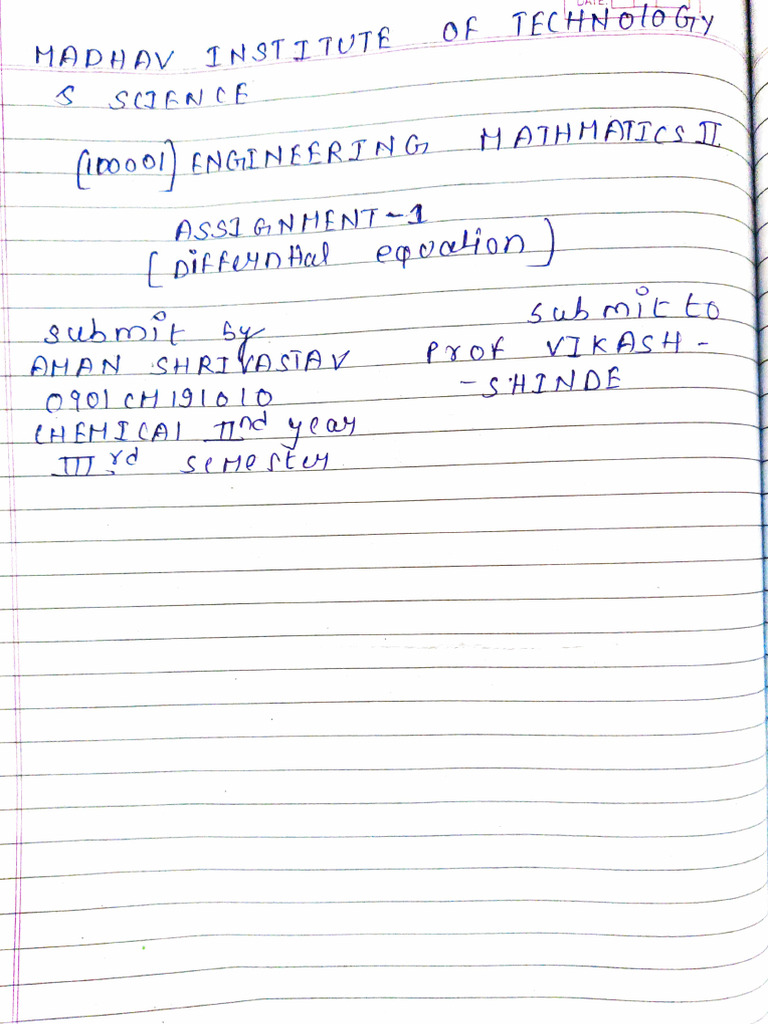 DATE:
MADHAV INSTITUTE OF TECHNOLOGY
& SCIENCE
(100001) ENGINEERING MATHMATICS II
ASSIGNMENT-1
[Differntial equation]
submit by
submit to
AMAN SHRIVASTAV
Prof VIKASH -
- SHINDE
0901CH191010
CHEMICAL IInd year
III rd semester